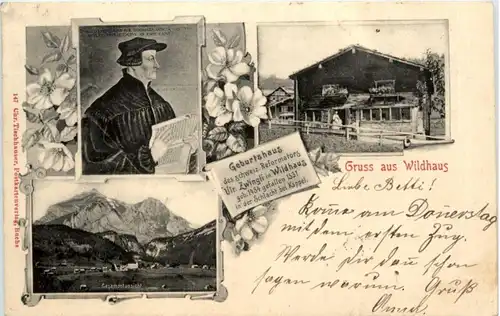 Geburtshaus
des schweiz. Reformators
Ulr. Zwingli in Wildhaus
geb. 1484 gefallen 1531
in der Schlacht bei Kappel.
Gruss aus Wildhaus
Liebe Betti!
Komme am Donerstag
mit dem ersten Zug.
Werde dir dan schon
sagen warum. Gruß
Gesammtansicht
147 Chr. Tischhauser, Postkartenverlag, Buchs